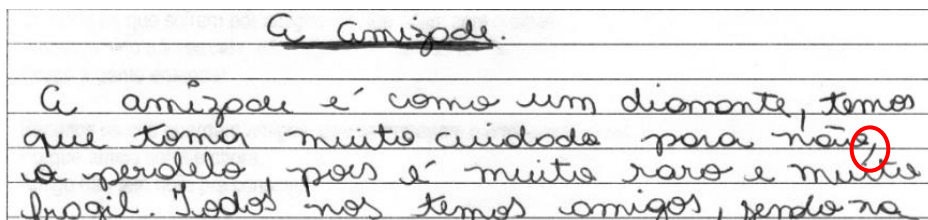 A Amizade.
A amizade é como um diamante, temos
que toma muito cuidado para não,
o perdelo, pois é muito raro e muito
fragil. Todos nos temos amigos, sendo na